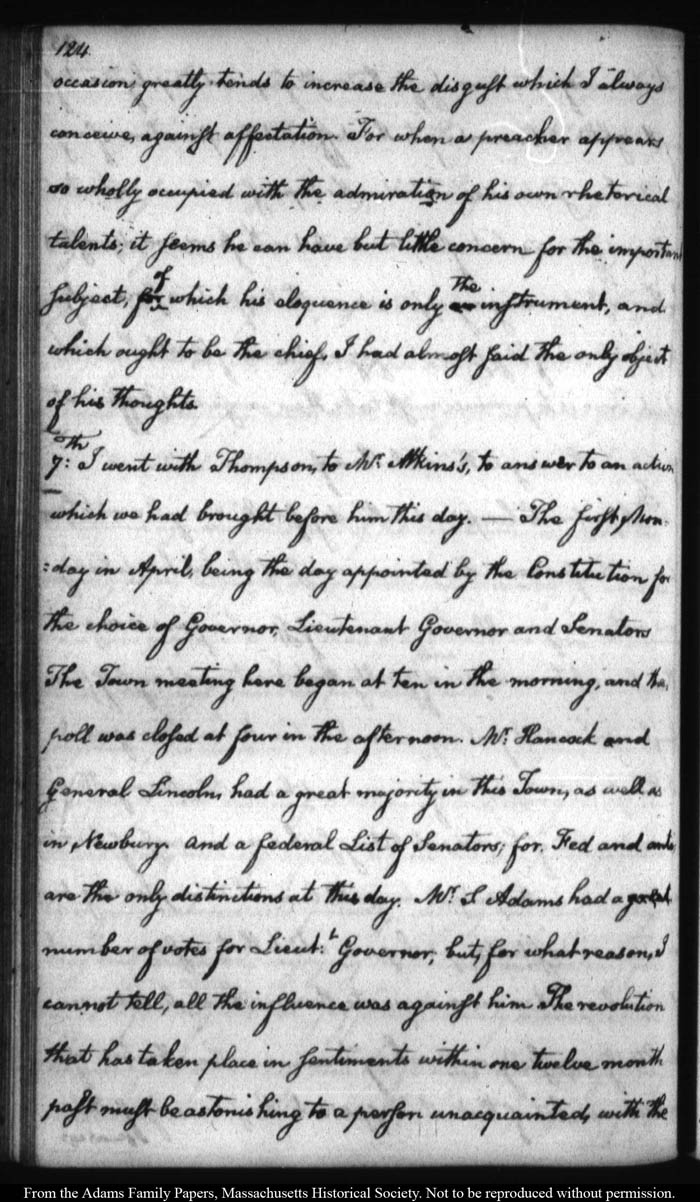 124.
occasion greatly tends to increase the disgust which I always
conceive, against affectation. For when a preacher appears
so wholly occupied with the admiration of his own rhetorical
talents; it seems he can have but little concern for the important
of The
subject, for which his eloquence is only an instrument, and
which ought to be the chief, I had almost said the only object
of his thoughts.
7:th I went with Thompson, to Mr. Atkins's, to answer to an action
which we had brought before him this day. — The first Mon-
:day in April, being the day appointed by the Constitution for
the choice of Governor, Lieutenant Governor and Senators
The Town meeting here began at ten in the morning, and the
poll was closed at four in the afternoon. Mr. Hancock and
General Lincoln, had a great majority in this Town, as well as
in, Newbury. and a federal List of Senators; for, Fed and anti
are the only distinctions at this day. Mr. S Adams had a great
number of votes for Lieut:t Governor; but, for what reason, I
cannot tell, all the influence was against him The revolution
that has taken place in sentiments within one twelve month
past must be astonishing to a person unacquainted, with the
From the Adams Family Papers, Massachusetts Historical Society. Not to be reproduced without permission.